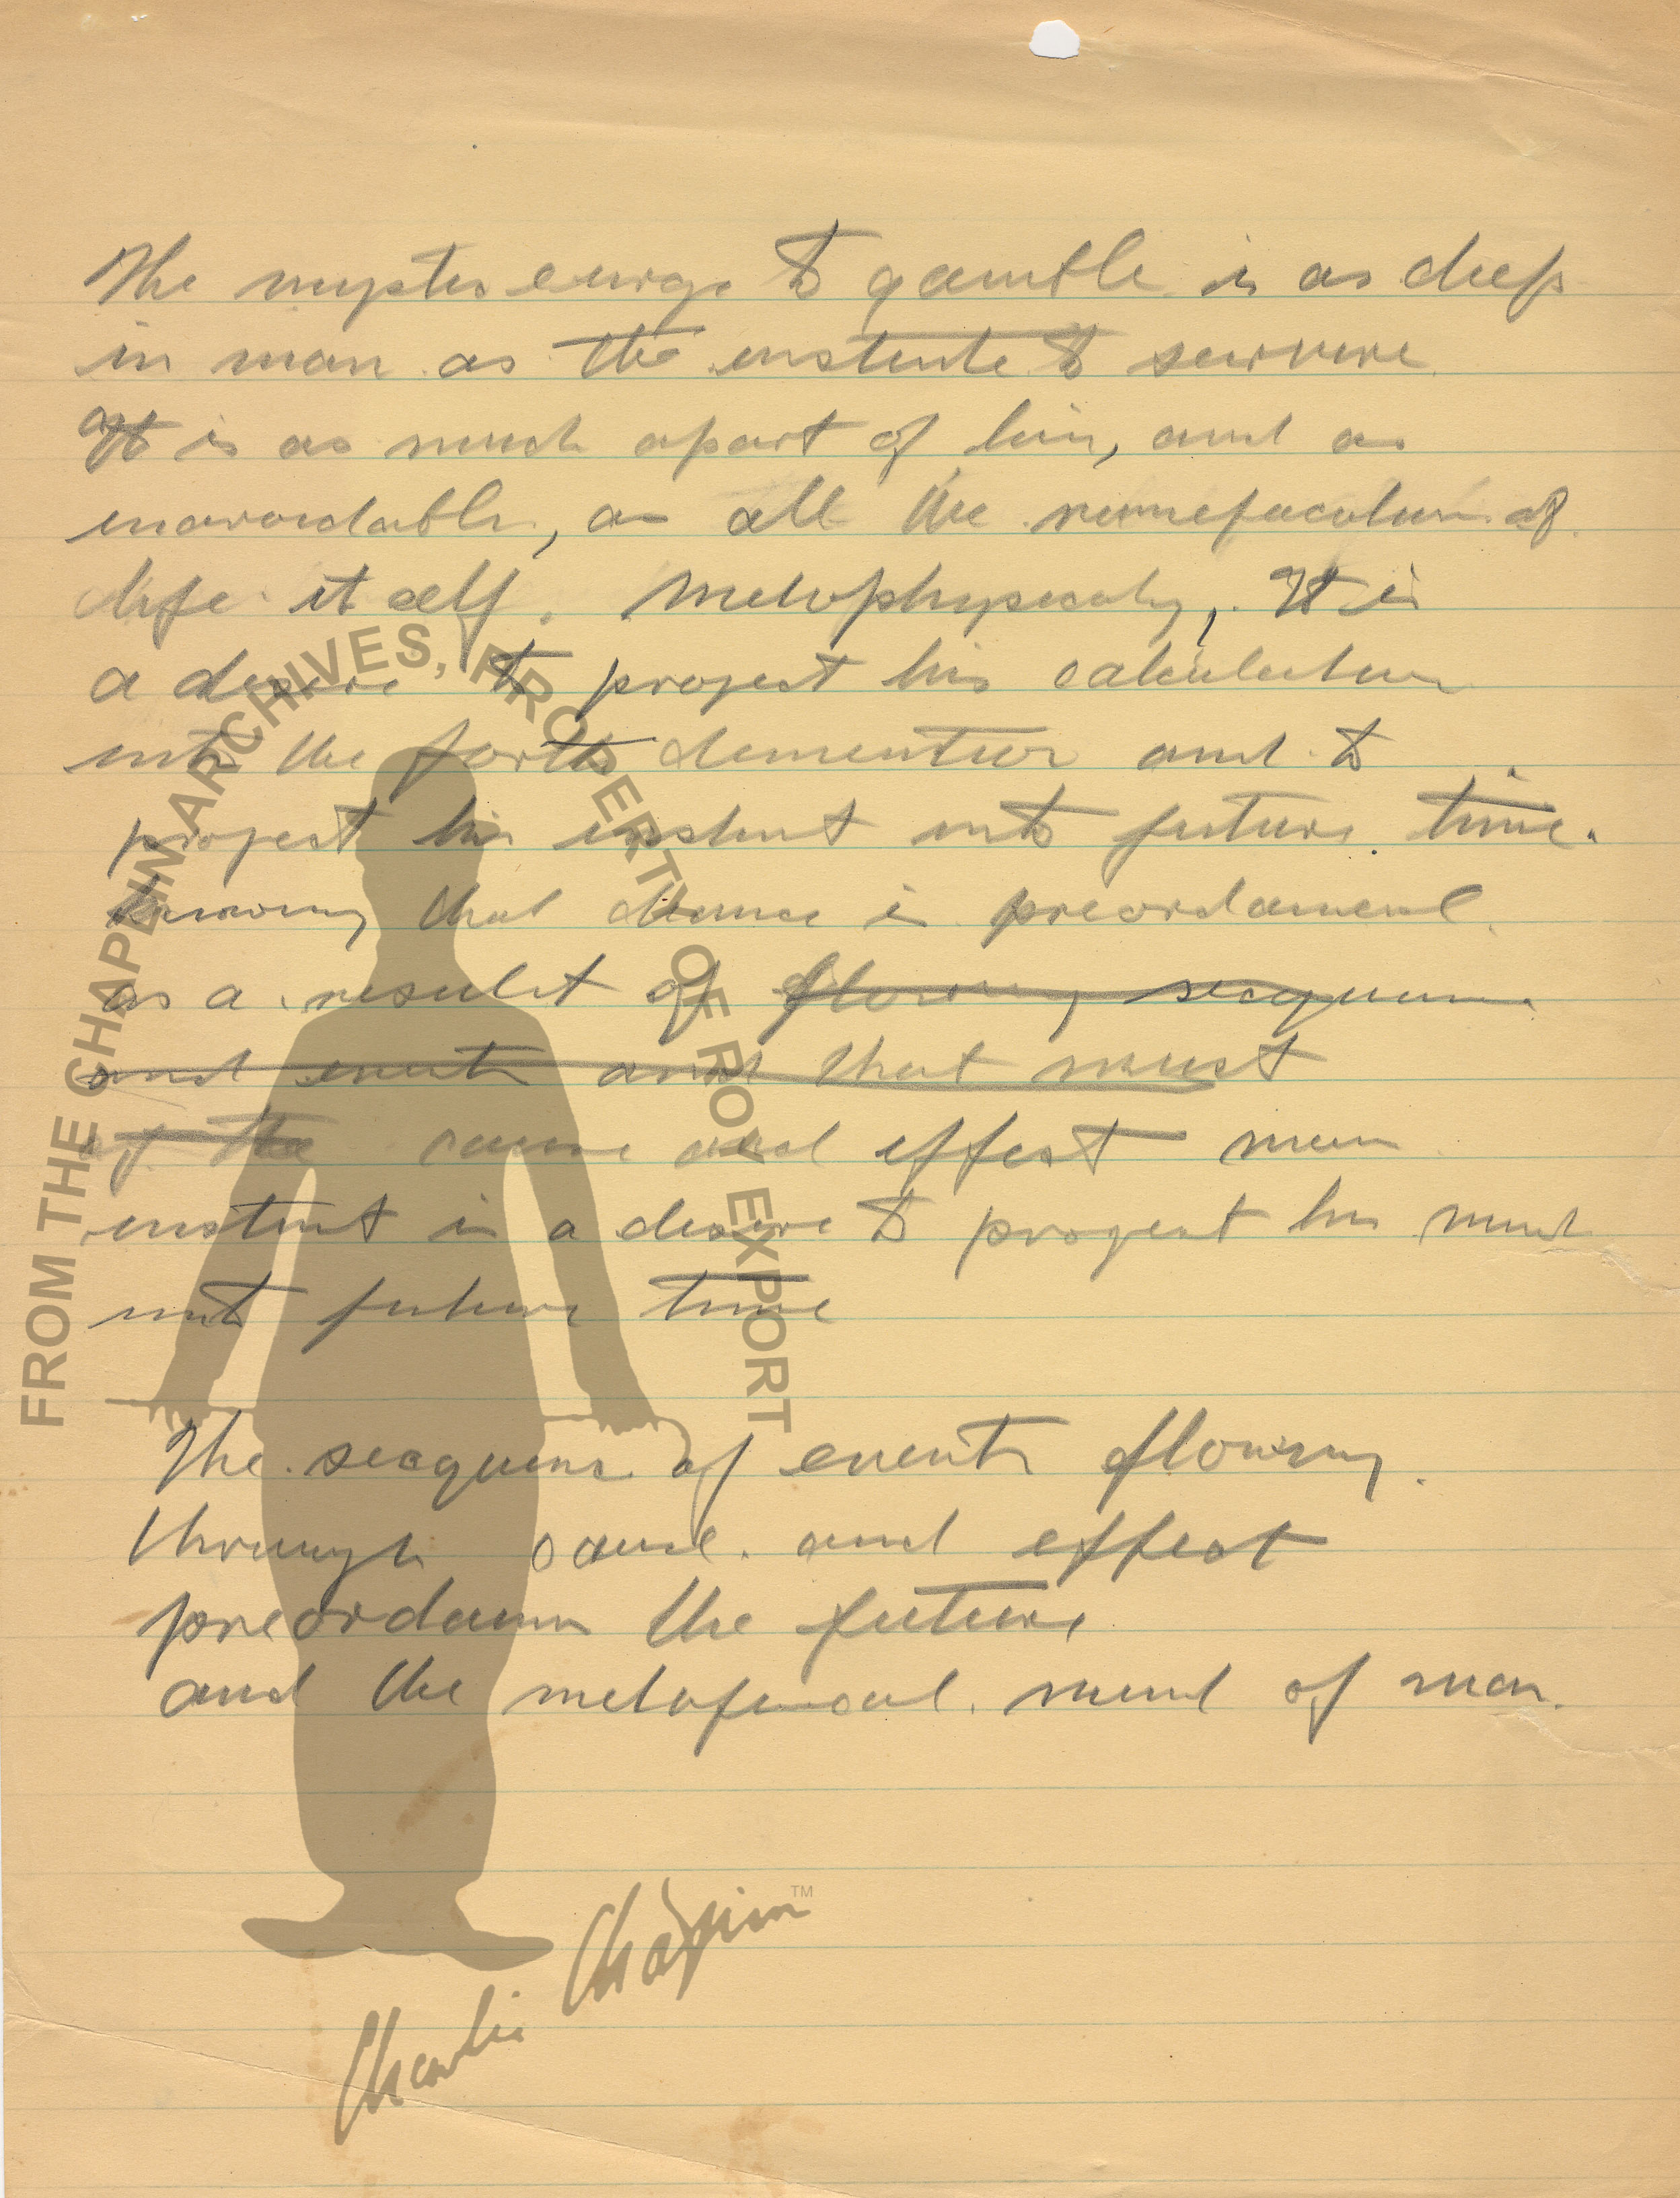 The myster eurge to gamble is as deep
in man as the enstente to servive
It is as much apart of him, and as
enavoidable, as all the of
life it self. Metophysecaly, It is
a desire to project his calculation
into the forth demention and to
project his instent into future time.
knowing that chance is preordained
as a result of flowing seaquence
and events and that must
of the cause and effect man
enstent is a desire to progect his mind
into future time
The seaquence of events flowing
through cause and effect
preordann the future
and the metafisical mind of man.
FROM THE CHAPLIN ARCHIVES, PROPERTY OF ROY EXPORT
Charlie Chaplin™